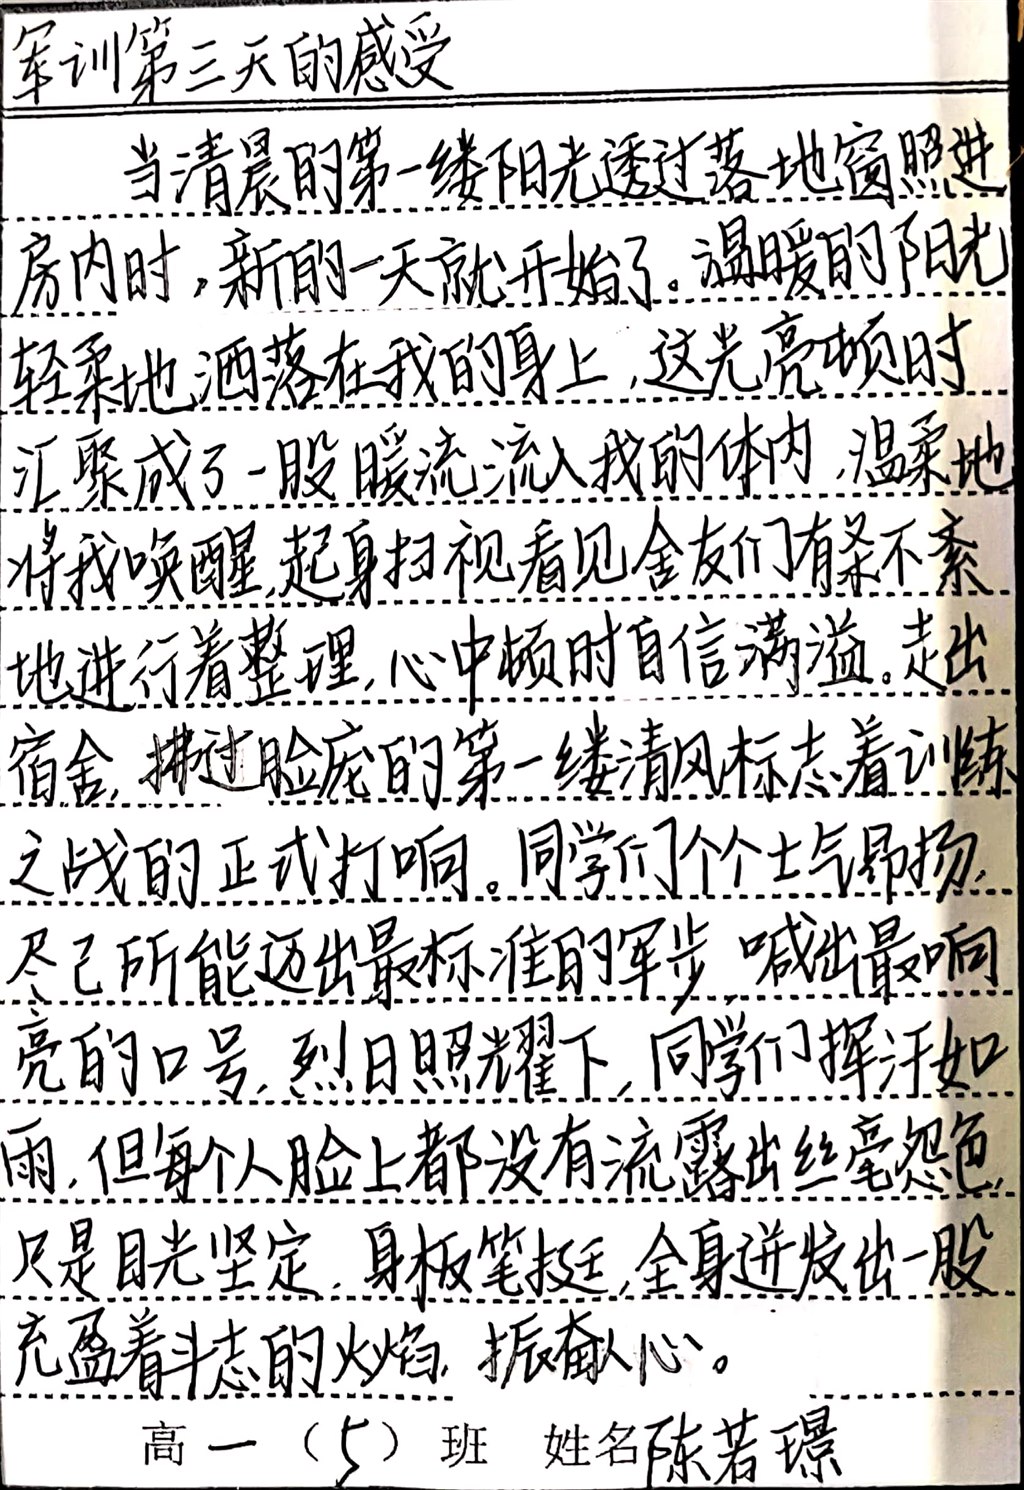 军训第三天的感受
当清晨的第一缕阳光透过落地窗照进
房内时，新的一天就开始了。温暖的阳光
轻柔地洒落在我的身上，这光亮顿时
汇聚成了一股暖流流入我的体内，温柔地
将我唤醒，起身扫视看见舍友们有条不紊
地进行着整理，心中顿时自信满溢。走出
宿舍，拂过脸庞的第一缕清风标志着训练
之战的正式打响。同学们个个士气昂扬，
尽己所能迈出最标准的军步，喊出最响
亮的口号，烈日照耀下，同学们挥汗如
雨，但每个人脸上都没有流露出丝毫怨色，
只是目光坚定，身板笔挺，全身迸发出一股
充盈着斗志的火焰，振奋人心。
高一（5）班 姓名陈若璟